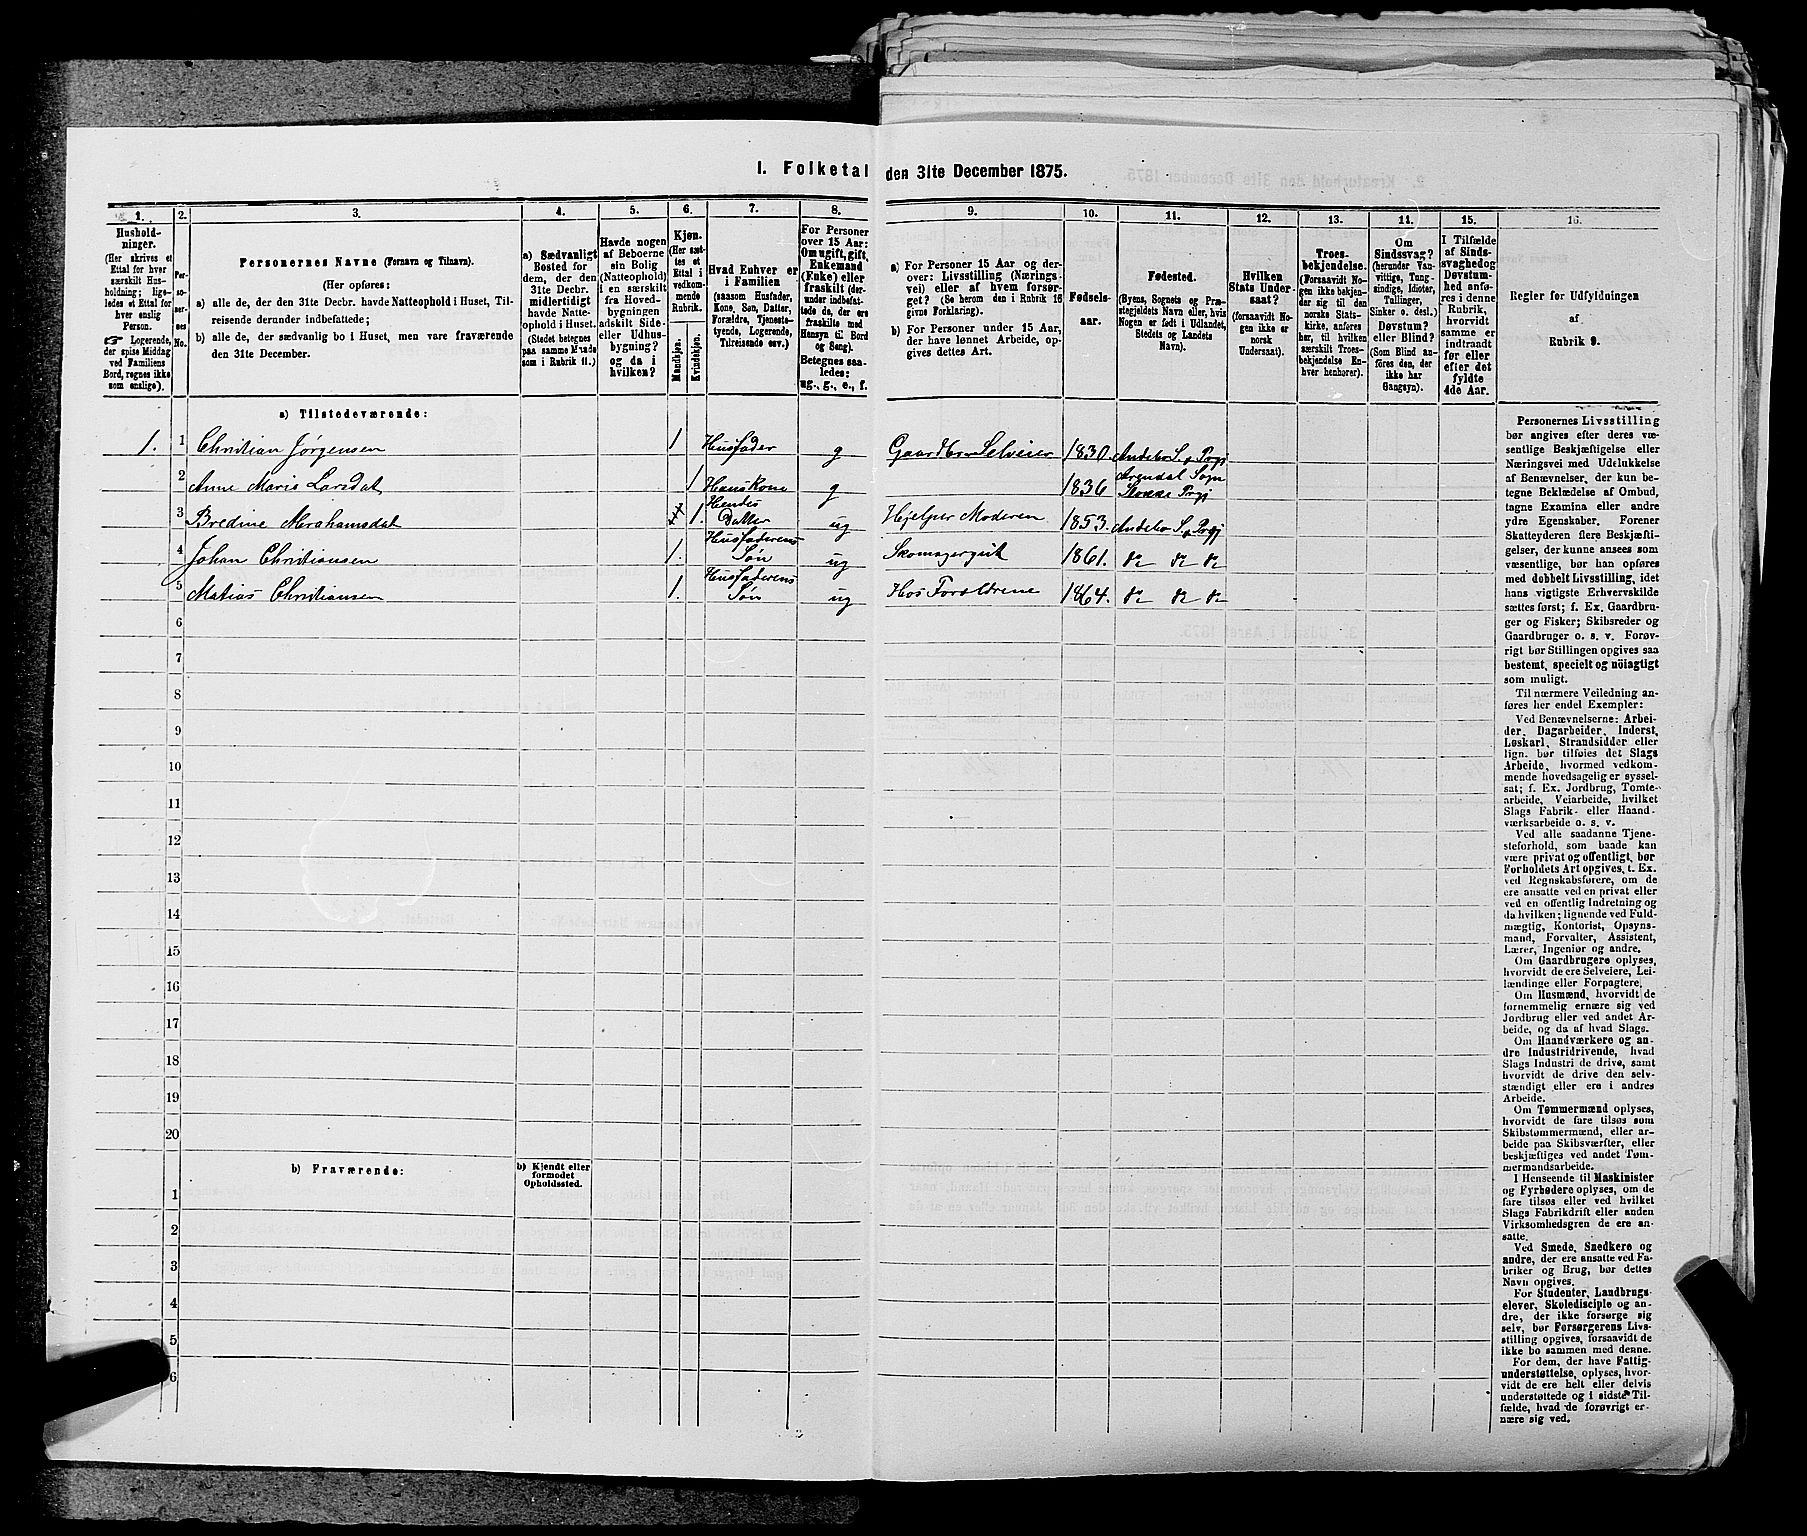 I. Folketal den 31te December 1875.
1. 2. 3. 4. 5. 6. 7. 8. 9. 10. 11. 12. 13. 14. 15. 16.
Hushold-
ninger.
(Her skrives et
Ettal for hver
særskilt Hus-
holdning; lige-
ledes et Ettal for
hver enslig
Person.
☞ Logerende,
der spise Middag
ved Familiens
Bord, regnes ikke
som enslige).
Per-
soner-
nes
No.
Personernes Navne (Fornavn og Tilnavn).
(Her opføres:
a) alle de, der den 31te Decbr. havde Natteophold i Huset, Til-
reisende derunder indbefattede;
b) alle de, der sædvanlig bo i Huset, men vare fraværende
den 31te December.
a) Sædvanligt
Bosted for
dem, der den
31te Decbr.
midlertidigt
havde Natte-
ophold i Huset.
(Stedet betegnes
paa samme Maade
som i Rubrik 11.)
Havde nogen
af Beboerne
sin Bolig
(Natteophold)
i en særskilt
fra Hoved-
bygningen
adskilt Side-
eller Udhus-
bygning?
og da i
hvilken?
Kjøn.
(Her sæt-
tes et
Ettal i
vedkom-
mende
Rubrik.
Mandkjøn.
Kvindekjøn.
Hvad Enhver er
i Familien
(saasom Husfader,
Kone, Søn, Datter,
Forældre, Tjeneste-
tyende, Logerende,
Tilreisende osv.)
For Personer
over 15 Aar:
Om ugift, gift,
Enkemand
(Enke) eller
fraskilt (der-
under indbefat-
tede de, der ere
fraskilte med
Hensyn til Bord
og Seng).
Betegnes saa-
ledes:
ug., g., e., f.
a) For Personer 15 Aar og der-
over: Livsstilling (Nærings-
vei) eller af hvem forsør-
get? (Se herom den i Rubrik 16
givne Forklaring).
b) For Personer under 15 Aar,
der have lønnet Arbeide, op-
gives dettes Art.
Fødsels-
aar.
Fødested.
(Byens, Sognets og Præ-
stegjeldets Navn eller, hvis
Nogen er født i Udlandet,
Stedets og Landets
Navn).
Hvilken
Stats Under-
saat?
(forsaavidt No-
gen ikke er
norsk
Undersaat).
Troes-
bekjendelse.
(Forsaavidt No-
gen ikke bekjen-
der sig til den
norske Stats-
kirke, anføres
her, til hvilken
særskilt Troes-
bekjendelse En-
hver henhører).
Om
Sindssvag?
(herunder Van-
vittige, Tung-
sindige, Idioter,
Tullinger,
Sinker o. desl.)
Døvstum?
eller Blind?
(Som Blind an-
føres den, der
ikke har
Gangsyn).
I Tilfælde
af Sinds-
svaghed og
Døvstum-
hed anfø-
res i denne
Rubrik,
hvorvidt
samme er
indtraadt
før eller
efter det
fyldte
4de Aar.
Regler for Udfyldningen
af
Rubrik 9.
a) Tilstedeværende:
1. 1 Christian Jørgensen 1 Husfader g Gaardbr Selveier 1830. Andebo S. & Prgj
2 Anne Maris Larsdat 1 Hans Kone g 1836 Arendal Sogn Stokke Prgj
3 Bredine Abrahamsdat 1. Hendes Datter ug Hjelper Moderen 1853. Andebo S. & Prgj
4 Johan Christiansen 1. Husfaderens Søn ug Skomagergut 1861. do do do
5 Matias Christiansen 1. Husfaderens Søn ug Hos Forældrene 1864. do do do
6
7
8
9
10
11
12
13
14
15
16
17
18
19
20
b) Fraværende:
b) Kjendt eller
formodet
Opholdssted.
1
2
3
4
5
6
Personernes Livsstilling
bør angives efter deres væ-
sentlige Beskjæftigelse eller
Næringsvei med Udelukkelse
af Benævnelser, der kun be-
tegne Beklædelse af Ombud,
tagne Examina eller andre
ydre Egenskaber. Forener
Skatteyderen flere Beskjæfti-
gelser, der kunne ansees som
væsentlige, bør han opføres
med dobbelt Livsstilling, idet
hans vigtigste Erhvervskilde
sættes først; f. Ex. Gaardbru-
ger og Fisker; Skibsreder og
Gaardbruger o. s. v. Forøv-
rigt bør Stillingen opgives saa
bestemt, specielt og nöiagtigt
som muligt.
Til nærmere Veiledning an-
føres her endel Exempler:
Ved Benævnelserne: Arbei-
der, Dagarbeider, Inderst,
Løskarl, Strandsidder eller
lign. bør tilføies det Slags
Arbeide, hvormed vedkom-
mende hovedsagelig er syssel-
sat; f. Ex. Jordbrug, Tomte-
arbeide, Veiarbeide, hvilket
Slags Fabrik- eller Haand-
værksarbeide o. s. v.
Ved alle saadanne Tjene-
steforhold, som baade kan
være privat og offentligt, bør
Forholdets Art opgives, t. Ex.
ved Regnskabsførere, om de
ere ansatte ved en privat eller
ved en offentlig Indretning og
da hvilken; lignende ved Fuld-
mægtig, Kontorist, Opsyns-
mand, Forvalter, Assistent,
Lærer, Ingeniør og andre.
Om Gaardbrugere oplyses,
hvorvidt de ere Selveiere, Lei-
lændinge eller Forpagtere.
Om Husmænd, hvorvidt de
fornemmelig ernære sig ved
Jordbrug eller ved andet Ar-
beide, og da af hvad Slags.
Om Haandværkere og an-
dre Industridrivende, hvad
Slags Industri de drive, samt
hvorvidt de drive den selv-
stændigt eller ere i andres
Arbeide.
Om Tømmermænd oplyses,
hvorvidt de fare tilsøs som
Skibstømmermænd, eller ar-
beide paa Skibsværfter, eller
beskjæftiges ved andet Tøm-
mermandsarbeide.
I Henseende til Maskinister
og Fyrbødere oplyses, om de
fare tilsøs eller ved hvilket
Slags Fabrikdrift eller anden
Virksomhedsgren de ere an-
satte.
Ved Smede, Snedkere og
andre, der ere ansatte ved Fa-
briker og Brug, bør dettes
Navn opgives.
For Studenter, Landbrugs-
elever, Skoledisciple og an-
dre, der ikke forsørge sig
selv, bør Forsørgerens Livs-
stilling opgives, forsaavidt de
ikke bo sammen med denne.
For dem, der have Fattig-
understøttelse, oplyses, hvor-
vidt de ere helt eller delvis
understøttede og i sidste Til-
fælde, hvad de forøvrigt er-
nære sig ved.